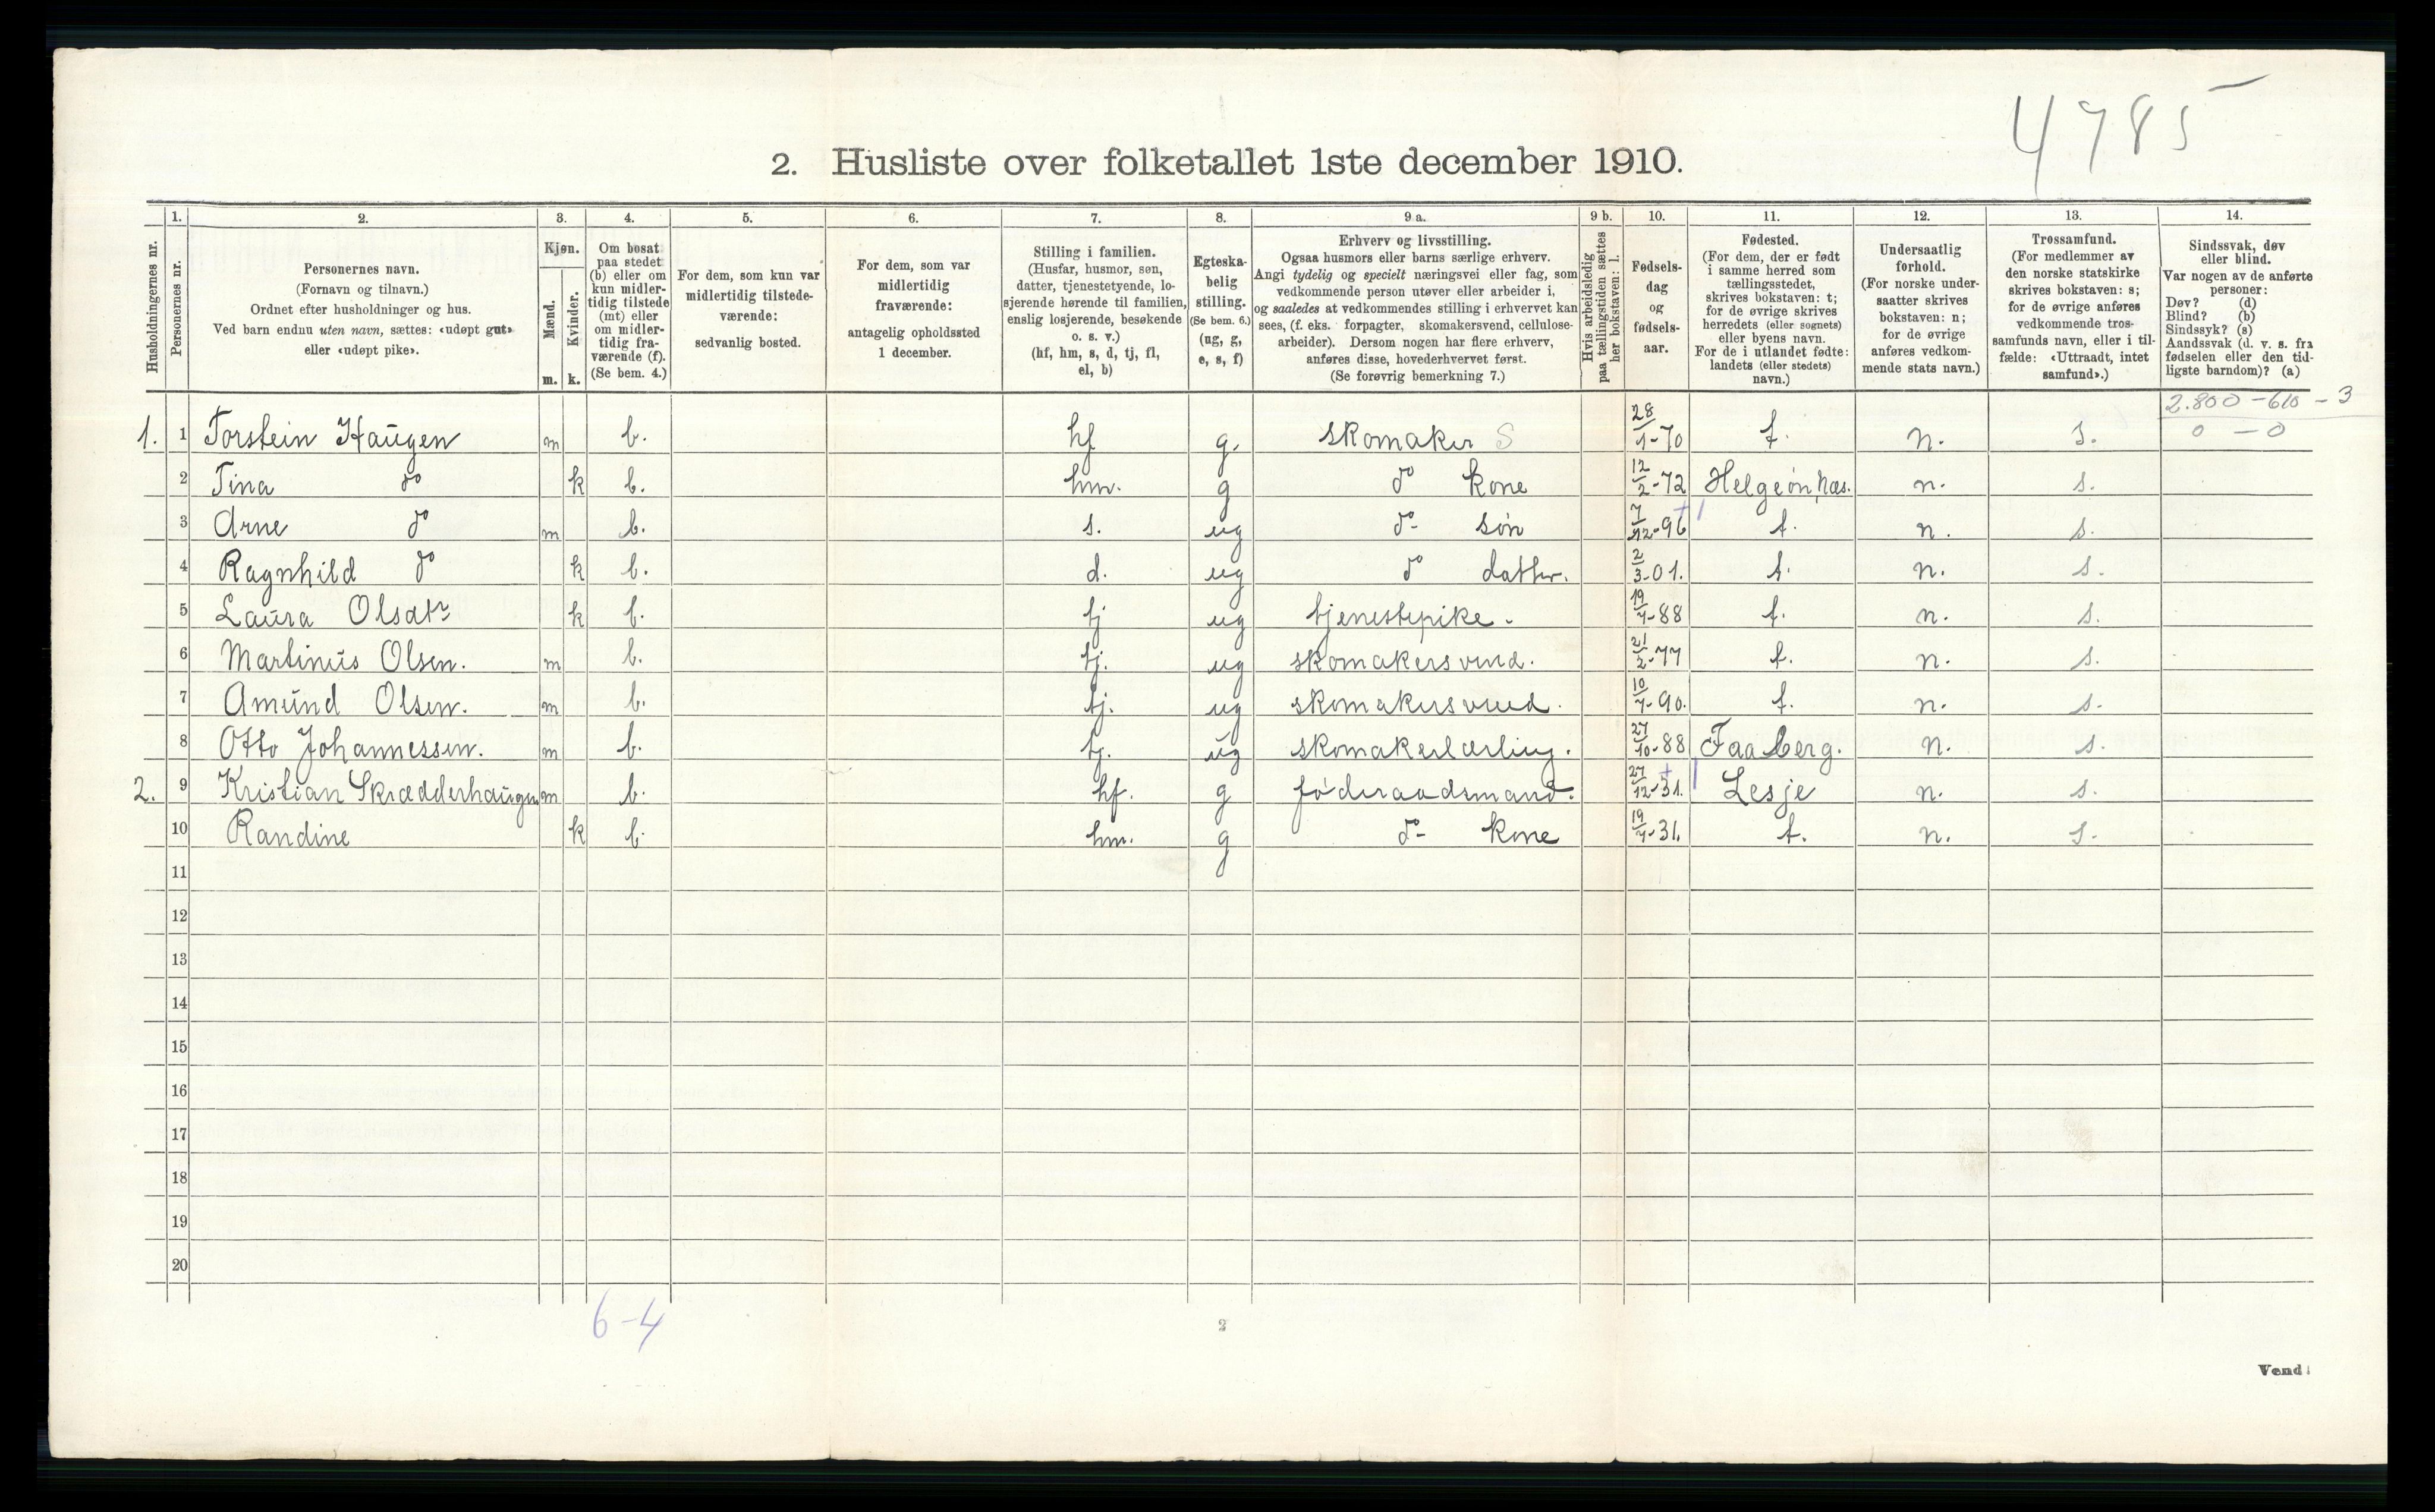 4785
2. Husliste over folketallet 1ste december 1910.
Husholdningernes nr.
1. Personernes nr.
2. Personernes navn. (Fornavn og tilnavn.) Ordnet efter husholdninger og hus. Ved barn endnu uten navn, sættes: «udøpt gut» eller «udøpt pike».
3. Kjøn. Mænd. m. Kvinder. k.
4. Om bosat paa stedet (b) eller om kun midlertidig tilstede (mt) eller om midlertidig fraværende (f). (Se bem. 4.)
5. For dem, som kun var midlertidig tilstedeværende: sedvanlig bosted.
6. For dem, som var midlertidig fraværende: antagelig opholdssted 1 december.
7. Stilling i familien. (Husfar, husmor, søn, datter, tjenestetyende, losjerende hørende til familien, enslig losjerende, besøkende o. s. v.) (hf, hm, s, d, tj, fl, el, b)
8. Egteskabelig stilling. (Se bem. 6.) (ug, g, e, s, f)
9 a. Erhverv og livsstilling. Ogsaa husmors eller barns særlige erhverv. Angi tydelig og specielt næringsvei eller fag, som vedkommende person utøver eller arbeider i, og saaledes at vedkommendes stilling i erhvervet kan sees, (f. eks. forpagter, skomakersvend, cellulosearbeider). Dersom nogen har flere erhverv, anføres disse, hovederhvervet først. (Se forøvrig bemerkning 7.)
9 b. Hvis arbeidsledig paa tællingstiden sættes her bokstaven: l.
10. Fødselsdag og fødselsaar.
11. Fødested. (For dem, der er født i samme herred som tællingsstedet, skrives bokstaven: t; for de øvrige skrives herredets (eller sognets) eller byens navn. For de i utlandet fødte: landets (eller stedets) navn.)
12. Undersaatlig forhold. (For norske undersaatter skrives bokstaven: n; for de øvrige anføres vedkommende stats navn.)
13. Trossamfund. (For medlemmer av den norske statskirke skrives bokstaven: s; for de øvrige anføres vedkommende trossamfunds navn, eller i tilfælde: «Uttraadt, intet samfund».)
14. Sindssvak, døv eller blind. Var nogen av de anførte personer: Døv? (d) Blind? (b) Sindssyk? (s) Aandssvak (d. v. s. fra fødselen eller den tidligste barndom)? (a)
2.800 - 610 - 3
0 - 0
1. 1 Torstein Haugen m b. hf g. skomaker S 28/1-70 t. n. s.
2 Tina do k b. hm. g do kone 12/2-72 Helgeøn, Næs. n. s.
3 Arne do m b. s. ug do søn 7/12-96 t. n. s.
4 Ragnhild do k b. d. ug do datter. 2/3-01. t. n. s.
5 Laura Olsdtr k b. tj ug tjenestepike. 19/7-88 t. n. s.
6 Martinus Olsen. m b. tj. ug skomakersvend. 21/2-77 t. n. s.
7 Amund Olsen. m b. tj. ug skomakersvend. 10/7-90. t. n. s.
8 Otto Johannessen. m b. tj. ug skomakerlærling. 27/10-88 Faaberg. n. s.
2. 9 Kristian Skrædderhaugen m b. hf. g føderaadsmand. 27/12-31. Lesje n. s.
10 Randine k b. hm. g do kone 19/7-31. t. n. s.
11
12
13
14
15
16
17
18
19
20
6-4
2
Vend!